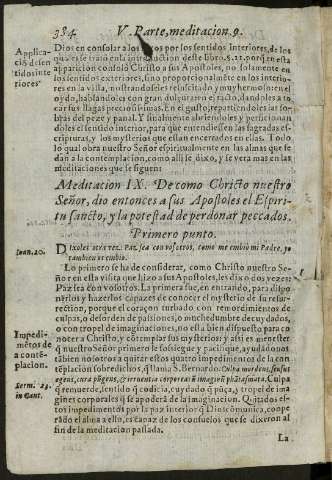 384 V. Parte, meditacion. 9.
Applicaciō de sentidos interiores
Dios en consolar a los suyos por los sentidos Interiores, de los
quales se trató en la introduccion deste libro, §. 11. porq̃ en esta
aparicion consoló Christo a sus Apostoles, no solamente en
los sentidos exteriores, sino proporcionalmẽte en los interiores
en la vista, mostrandoseles resucitado y muy hermoso: en el
oydo, hablandolos con gran dulçura: en el tacto, dandoles a tocar
sus llagas preciosissimas. En el gusto, repartiendoles las sobras
del pez y panal. Y finalmente abriendoles y perficionandoles
el sentido interior, para que entendiessen las sagradas escripturas,
y los mysterios que estan encerrados en ellas. Todo
lo qual obra nuestro Señor espiritualmente en las almas que se
dan a la contemplacion, como alli se dixo, y se vera mas en las
meditaciones que se siguen:
Meditacion IX. De como Christo nuestro
Señor, dio entonces a sus Apostoles el Espiritu
sancto, y la potestad de perdonar peccados.
Primero punto.
Ioan. 20.
Dixoles otra vez. Paz sea con vosotros, como me embio mi Padre, yo
tambien os embio.
Lo primero se ha de considerar, como Christo nuestro Señor
en esta visita que hizo a sus Apostoles, les dixo dos vezes:
Paz sea con vosotros. La primera fue, en entrando, para disponerlos
y hazerlos capazes de conocer el mysterio de su resurreccion,
porque el coraçon turbado con remordimientos de
culpas, o desorden de passiones, o muchedumbre de cuydados,
o con tropel de imaginaciones, no esta bien dispuesto para conocer
a Christo, y cõtemplar sus mysterios: y assi es menester
q̃ nuestro Señor primero le sossiegue y pacifique, ayudandonos
Impedimētos de a contēplacion.
tābien nosotros a quitar estos quatro impedimentos de la contēplacion
sobredichos, q̃ llama S. Bernardo. Culpa mordens, sensus
Sermi. 23. in Cant.
egens, cura pūgens, & irruentia corporearū imaginū phātasmata. Culpa
q̃ remuerde, sentido q̃ codicia, cuydado q̃ puça, y tropel de imagines
corporales q̃ se apoderá de la imaginacion. Quitados estos
impedimentos por la paz interior q̃ Dios comunica, coopera­rádo
el alma a ello, es capaz de los consuelos que se dixeron al
fin de la meditacion passada.
La